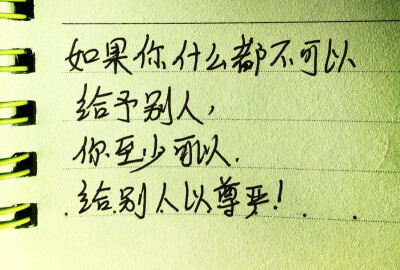 如果你什么都不可以
给予别人，
你至少可以
给别人以尊严！